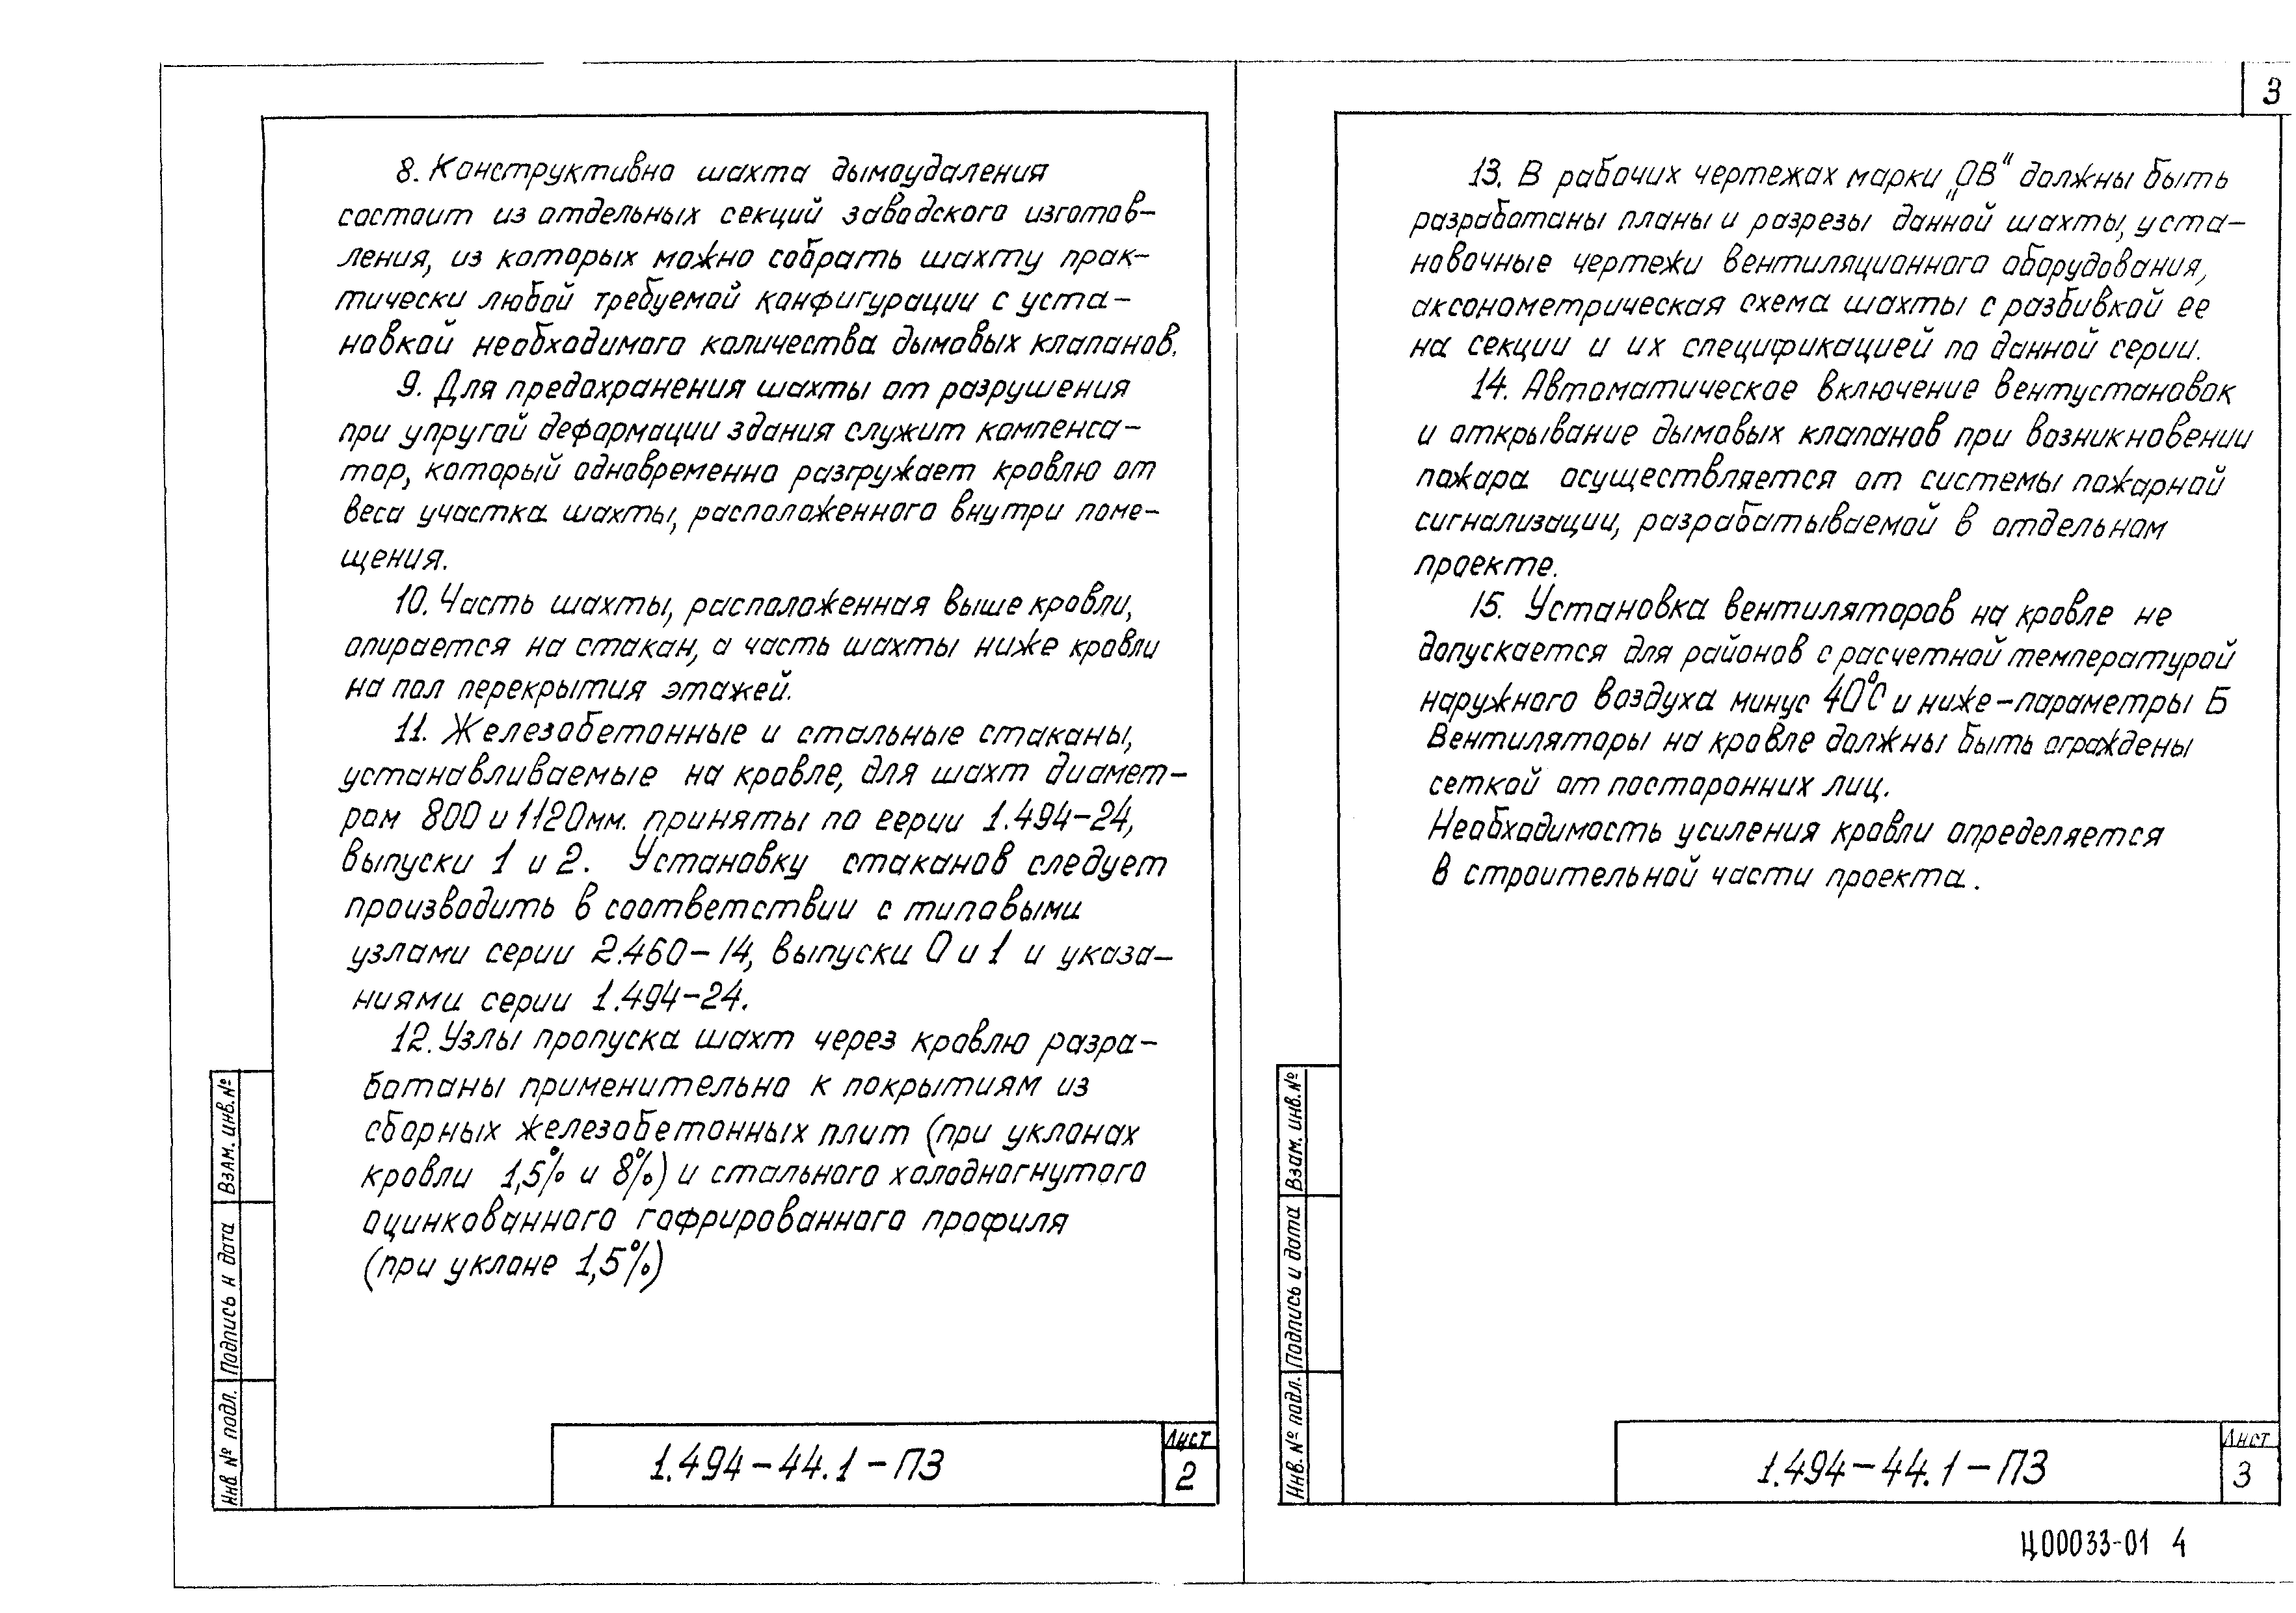 8. Конструктивно шахта дымоудаления
состоит из отдельных секций заводского изготов-
ления, из которых можно собрать шахту прак-
тически любой требуемой конфигурации с уста-
новкой необходимого количества дымовых клапанов.
9. Для предохранения шахты от разрушения
при упругой деформации здания служит компенса-
тор, который одновременно разгружает кровлю от
веса участка шахты, расположенного внутри поме-
щения.
10. Часть шахты, расположенная выше кровли,
опирается на стакан, а часть шахты ниже кровли
на пол перекрытия этажей.
11. Железобетонные и стальные стаканы,
устанавливаемые на кровле, для шахт диамет-
ром 800 и 1120мм. приняты по серии 1.494-24,
выпуски 1 и 2. Установку стаканов следует
производить в соответствии с типовыми
узлами серии 2.460-14, выпуски 0 и 1 и указа-
ниями серии 1.494-24.
12. Узлы пропуска шахт через кровлю разра-
ботаны применительно к покрытиям из
сборных железобетонных плит (при уклонах
кровли 1,5% и 8%) и стального холодногнутого
оцинкованного гофрированного профиля
(при уклоне 1,5%)
Взам. инв. №
Подпись и дата
Инв. № подл.
1.494-44.1-ПЗ
Лист
2
3
13. В рабочих чертежах марки „ОВ“ должны быть
разработаны планы и разрезы данной шахты, уста-
новочные чертежи вентиляционного оборудования,
аксонометрическая схема шахты с разбивкой ее
на секции и их спецификацией по данной серии.
14. Автоматическое включение вентустановок
и открывание дымовых клапанов при возникновении
пожара осуществляется от системы пожарной
сигнализации, разрабатываемой в отдельном
проекте.
15. Установка вентиляторов на кровле не
допускается для районов с расчетной температурой
наружного воздуха минус 40°С и ниже-параметры Б
Вентиляторы на кровле должны быть ограждены
сеткой от посторонних лиц.
Необходимость усиления кровли определяется
в строительной части проекта.
Взам. инв. №
Подпись и дата
Инв. № подл.
1.494-44.1-ПЗ
Лист
3
Ц00033-01 4